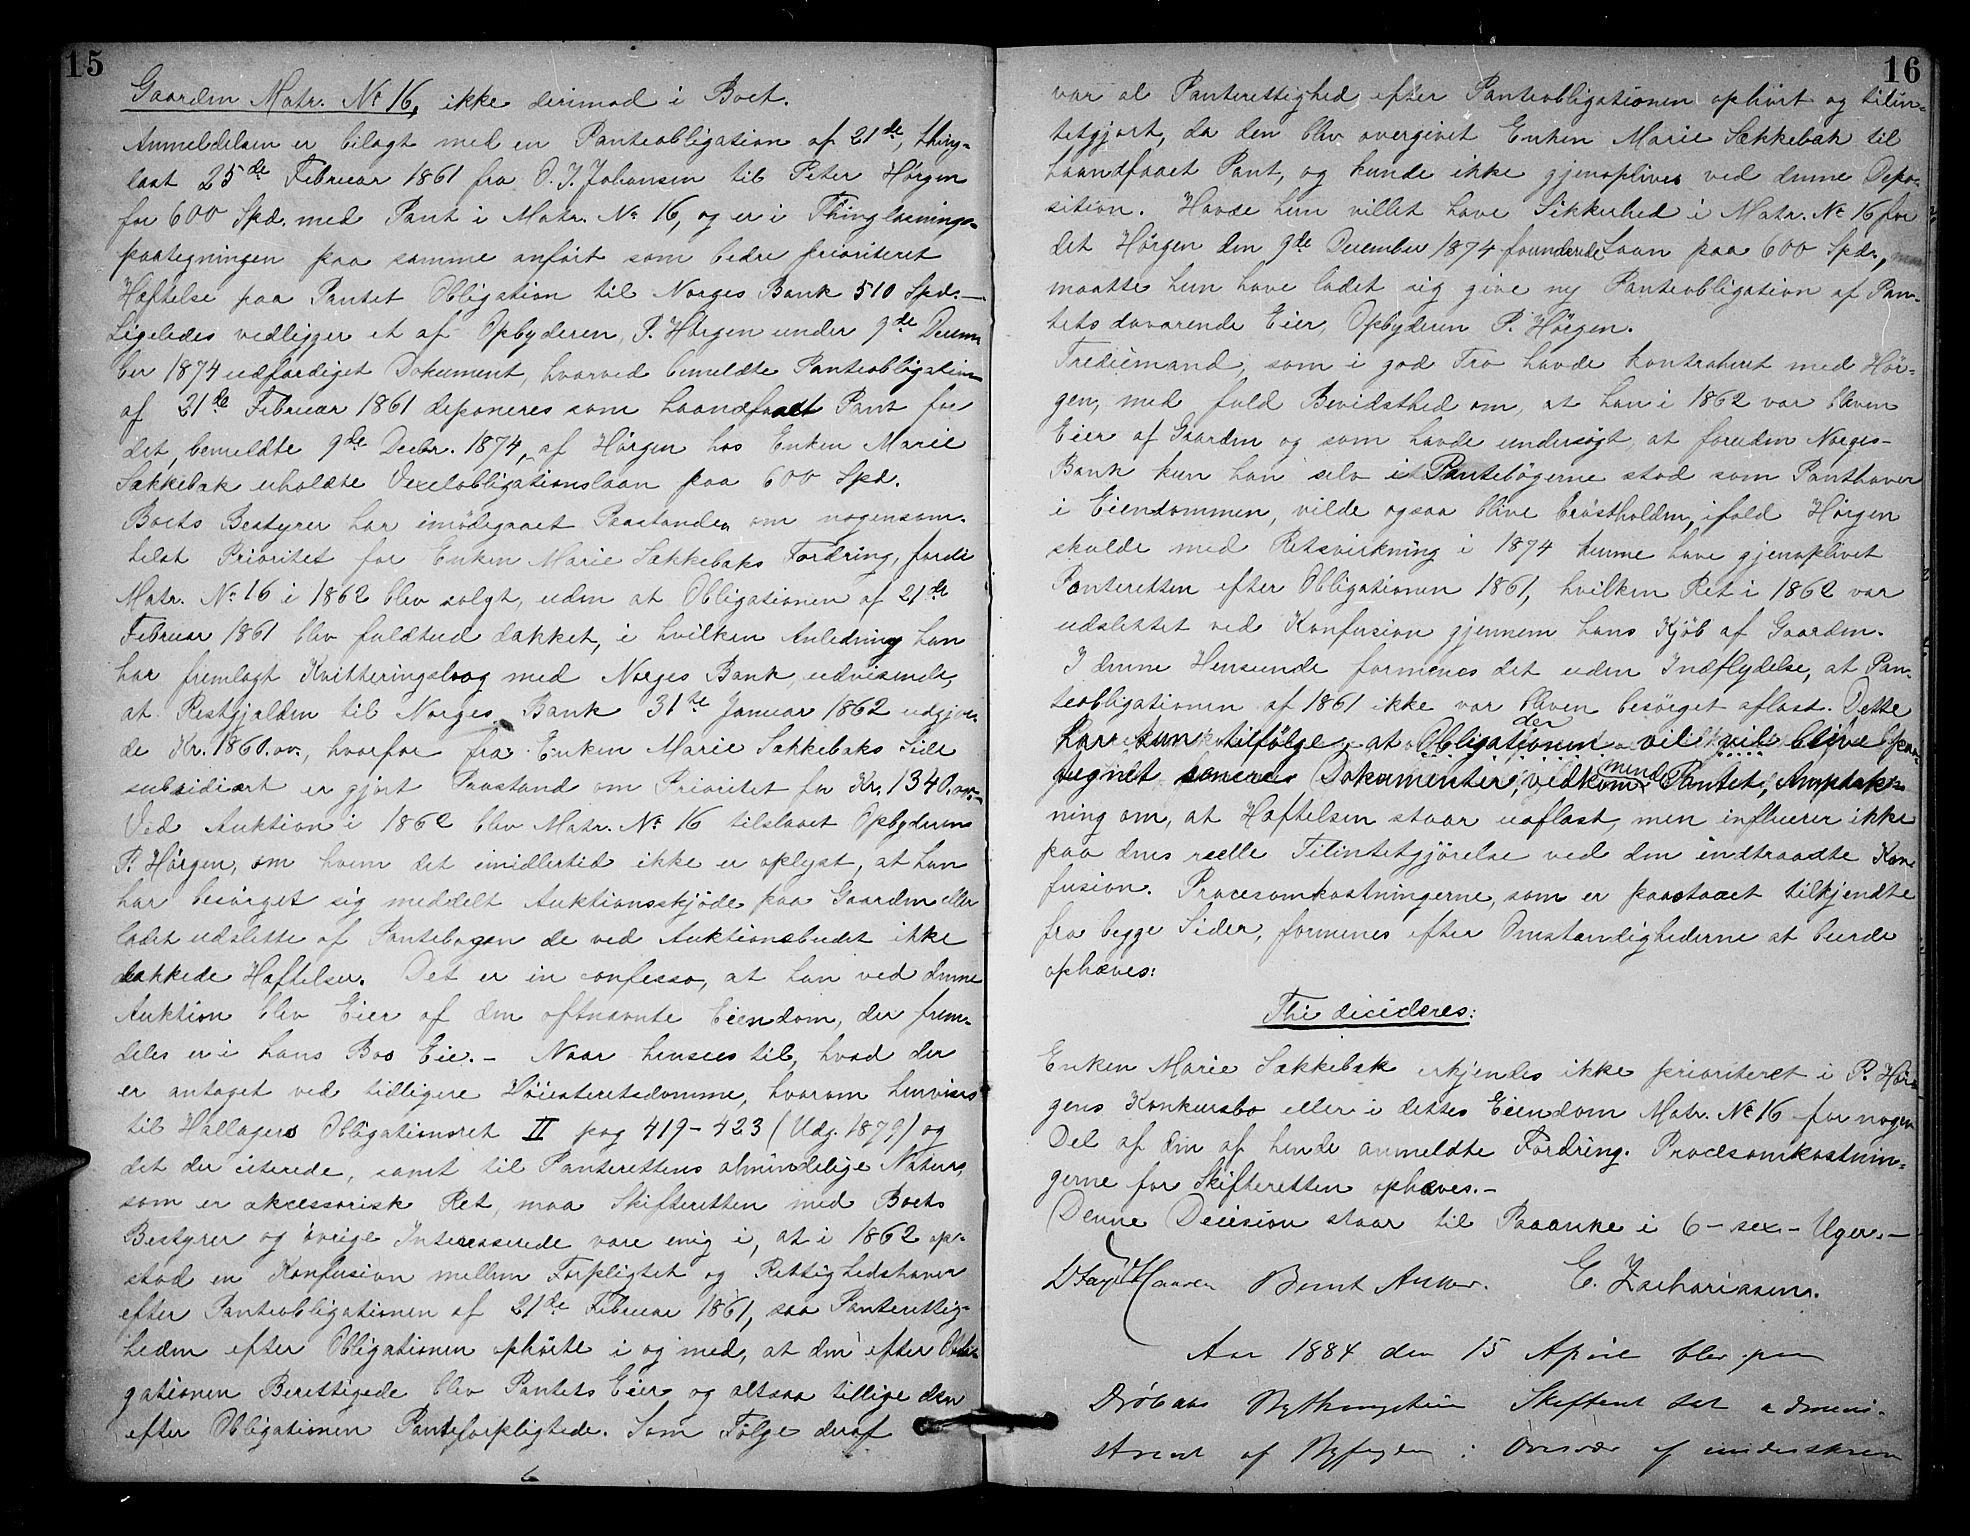 15
Gaarden Matr. No 16, ikke derimod i Boet.
Anmeldelsen er bilagt med en Panteobligation af 21de, thing-
læst 25de Februar 1861 fra O. J. Johansen til Peter Hørgen
for 600 Spd. med Pant i Matr. No 16, og er i Thinglæsnings-
paategningen paa samme anført som bedre prioriteret
Hæftelse paa Pantet Obligation til Norges Bank 510 Spd.—
Ligeledes vedligger et af Opbyderen, P. Hørgen under 9de Decem-
ber 1874 udfærdiget Dokument, hvorved bemeldte Panteobligation
af 21de Februar 1861 deponeres som haandfaaet Pant for
det, bemeldte 9de Decbr. 1874, af Hørgen hos Enken Marie
Sækkebæk erholdte Vexelobligationslaan paa 600 Spd.
Boets Bestyrer har imødegaaet Paastanden om nogensom-
helst Prioritet for Enken Marie Sækkebæks Fordring, fordi
Matr. No 16 i 1862 blev solgt, uden at Obligationen af 21de
Februar 1861 blev fuldtud dækket, i hvilken Anledning han
har fremlagt Kvitteringsbog med Norges Bank, udvisende,
at Restgjælden til Norges Bank 31te Januar 1862 udgjor-
de Kr. 1860.00, hvorfor fra Enken Marie Sækkebæks Side
subsidiært er gjort Paastand om Prioritet for Kr. 1340.00.—
Ved Auktion i 1862 blev Matr. No 16 tilslaaet Opbyderen
P. Hørgen, om hvem det imidlertid ikke er oplyst, at han
har besørget sig meddelt Auktionsskjøde paa Gaarden eller
ladet udslette af Pantebogen de ved Auktionsbudet ikke
dækkede Hæftelser. Det er in confesso, at han ved denne
Auktion blev Eier af den oftnævnte Eiendom, der frem-
deles er i hans Bos Eie.— Naar hensees til, hvad der
er antaget ved tidligere Høiesteretsdomme, hvorom henvises
til Hallagers Obligationsret II pag 419-423 (Udg. 1879) og
det der citerede, samt til Panterettens almindelige Natur,
som er akcessorisk Ret, maa Skifteretten med Boets
Bestyrer og øvrige Interesserede være enig i, at i 1862 op-
stod en Konfusion mellem Forpligtet og Rettighedshaver
efter Panteobligationen af 21de Februar 1861, saa Panterettig-
heden efter Obligationen ophørte i og med, at den efter Obli-
gationen Berettigede blev Pantets Eier og altsaa tillige den
efter Obligationen Panteforpligtede. Som Følge deraf
16
var al Panterettighed efter Panteobligationen ophørt og tilin-
tetgjort, da den blev overgivet Enken Marie Sækkebæk til
haandfaaet Pant, og kunde ikke gjenoplives ved denne Depo-
sition. Havde hun villet have Sikkerhed i Matr. No 16 for
det Hørgen den 9de December 1874 forundende Laan paa 600 Spd.,
maatte hun have ladet sig give ny Panteobligation af Pan-
tets daværende Eier, Opbyderen P. Hørgen.
Trediemand, som i god Tro havde kontraheret med Hør-
gen, med fuld Bevidsthed om, at han i 1862 var bleven
Eier af Gaarden og som havde undersøgt, at foruden Norges-
Bank kun han selv i Pantebøgerne stod som Panthaver
i Eiendommen, vilde ogsaa blive brøstholden, ifald Hørgen
skulde med Retsvirkning i 1874 kunne have gjenoplivet
Panteretten efter Obligationen 1861, hvilken Ret i 1862 var
udslettet ved Konfusion gjennem hans Kjøb af Gaarden.
I denne Henseende formenes det uden Indflydelse, at Pan-
teobligationen af 1861 ikke var bleven besørget aflæst. Dette
har kun tilfølge, at der Obligationen vil vil blive paa-
tegnet senere Dokumenter, vedkommende Pantet, Anmærk-
ning om, at Hæftelsen staar uaflæst, men influerer ikke
paa dens reelle Tilintetgjørelse ved den indtraadte Kon-
fusion. Procesomkostningerne, som er paastaaet tilkjendte
fra begge Sider, formenes efter Omstændighederne at burde
ophæves:
Thi decideres:
Enken Marie Sækkebæk erkjendes ikke prioriteret i P. Hør-
gens Konkursbo eller i dettes Eiendom Matr. No 16 for nogen
Del af den af hende anmeldte Fordring. Procesomkostnin-
gerne for Skifteretten ophæves.—
Denne Decision staar til Paaanke i 6 - sex - Uger.—
Bernt Anker. E. Zachariassen.
Aar 1884 den 15 April blev paa
Drøbaks Skifteret sat admini-
streret af Byfogden i Overvær af underskrevne